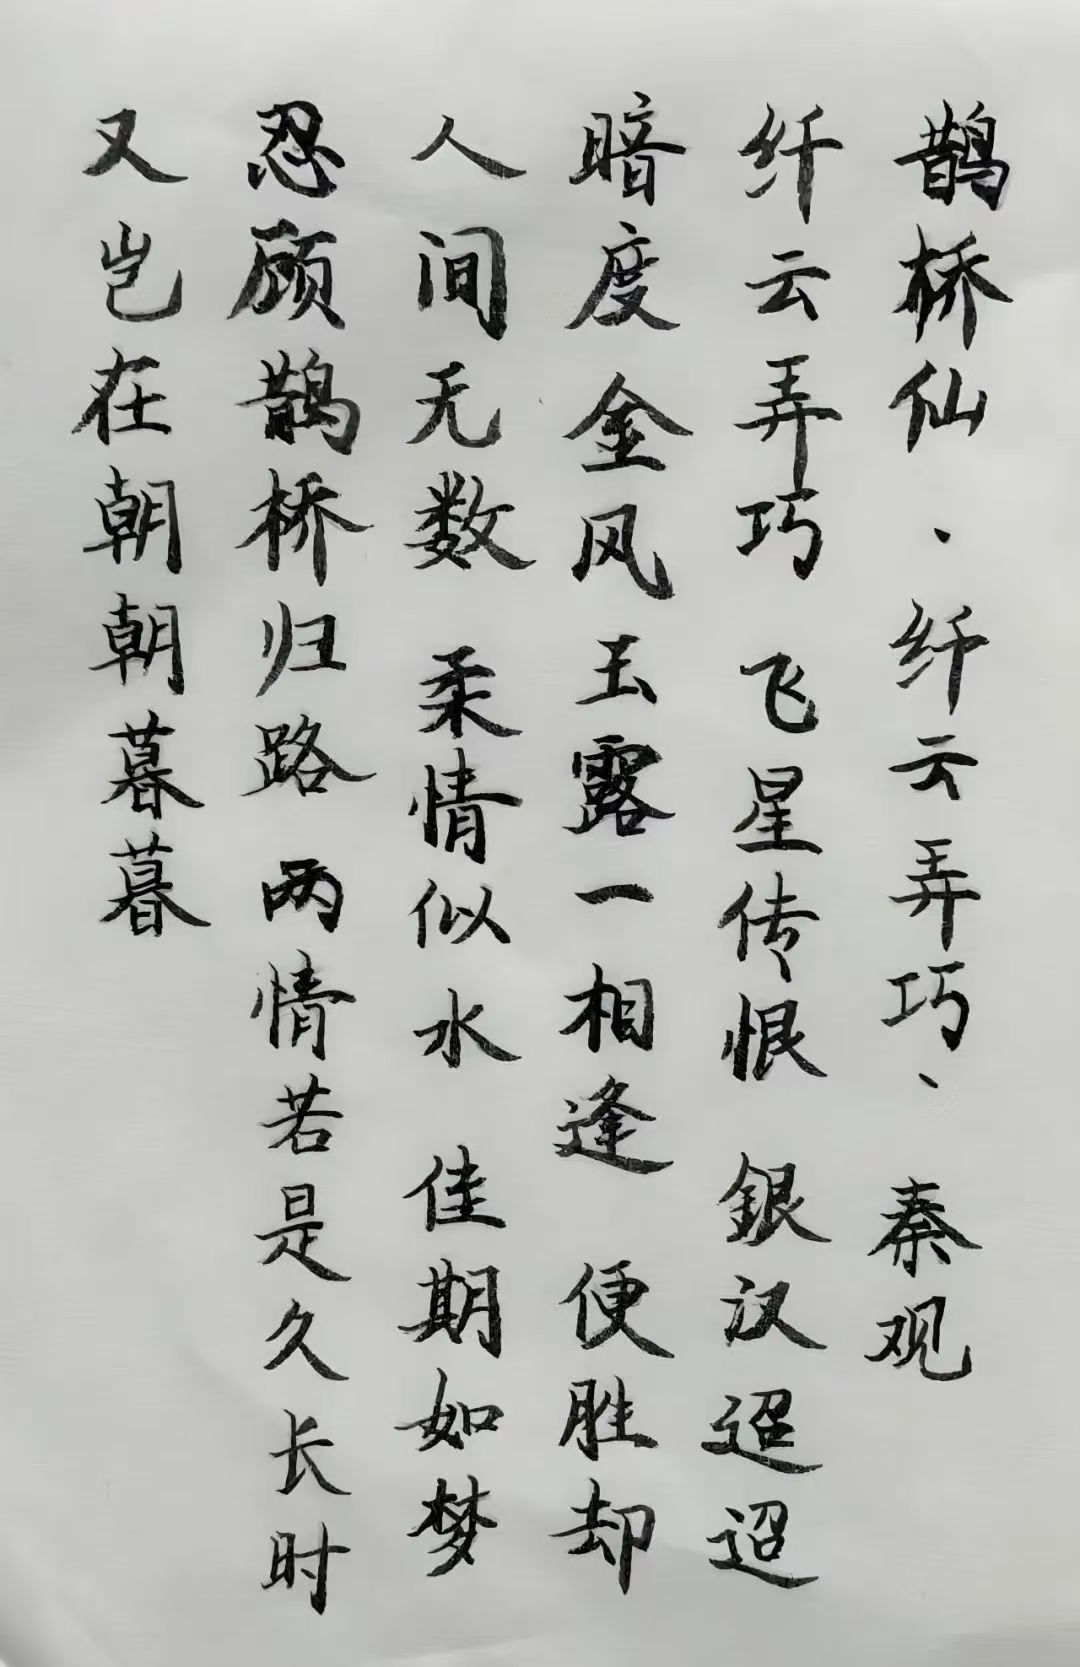 鹊桥仙、纤云弄巧、 秦观
纤云弄巧 飞星传恨 銀汉迢迢
暗度 金风玉露一相逢 便胜却
人间无数 柔情似水 佳期如梦
忍顾鹊桥归路 两情若是久长时
又岂在朝朝暮暮